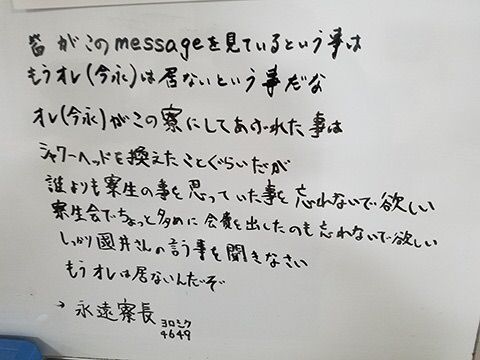 皆がこのmessageを見ているという事は
もうオレ(今永)は居ないという事だな
オレ(今永)がこの寮にしてあふれた事は
シャワーヘッドを換えたことぐらいだが
誰よりも寮生の事を思っていた事を忘れないで欲しい
寮生会でちょっと多めに会費を出したのも忘れないで欲しい
しっかり國井さんの言う事を聞きなさい
もうオレは居ないんだぞ
→永遠寮長 ヨロシク
4649